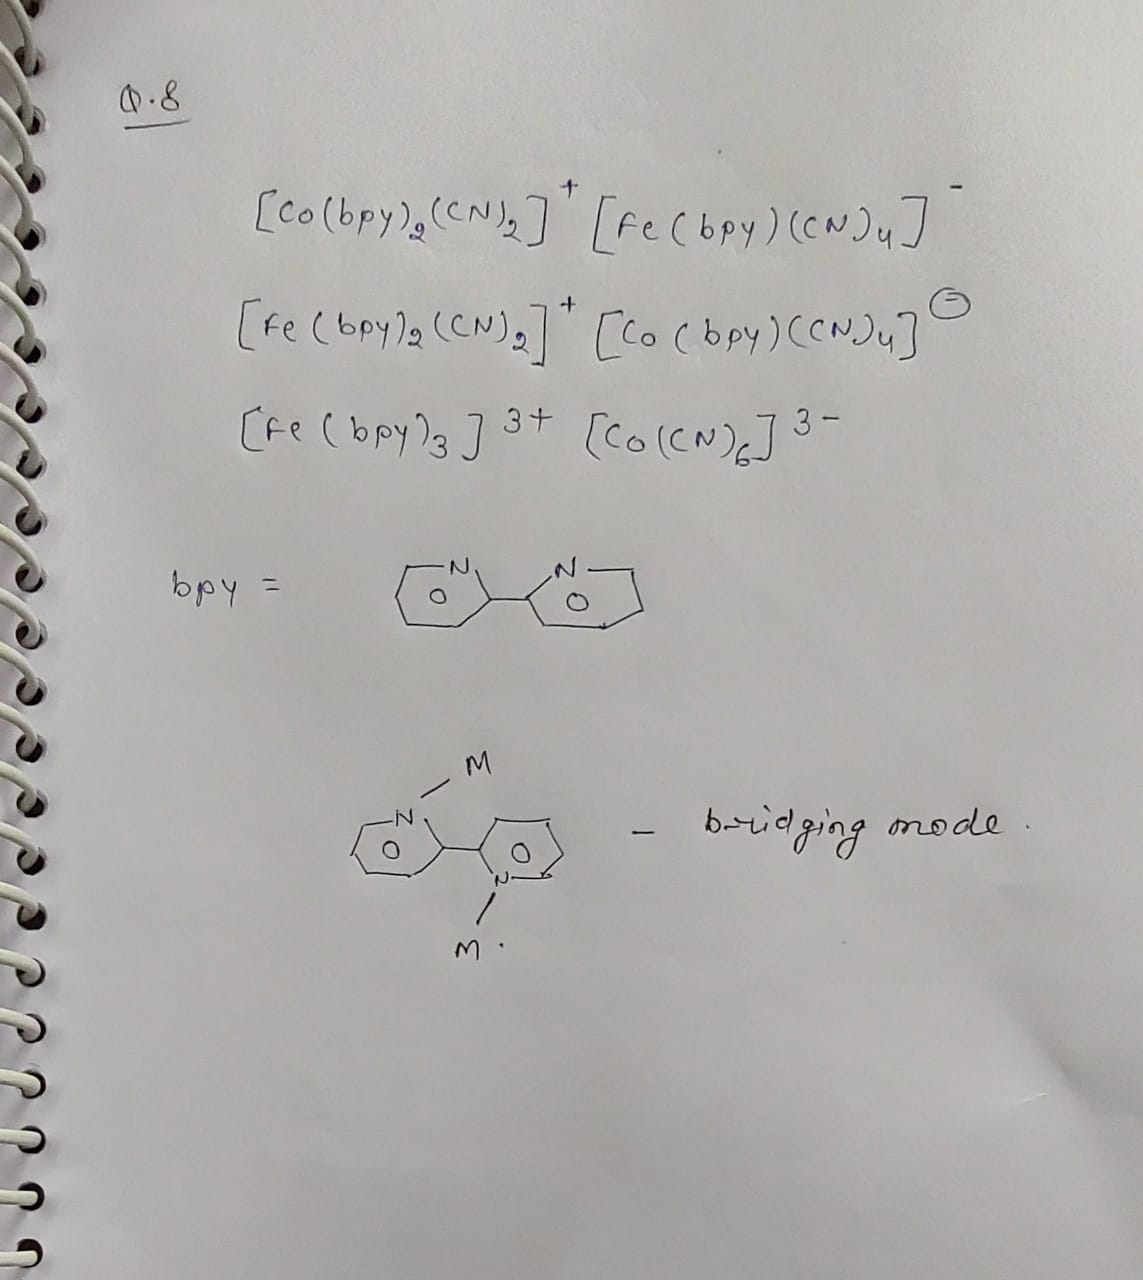 Q.8
[Co(bpy)₂(CN)₂]⁺ [Fe(bpy)(CN)₄]⁻
[Fe(bpy)₂(CN)₂]⁺ [Co(bpy)(CN)₄]⊖
[Fe(bpy)₃]³⁺ [Co(CN)₆]³⁻
bpy =
N N
M
N
– bridging mode.
N
M.